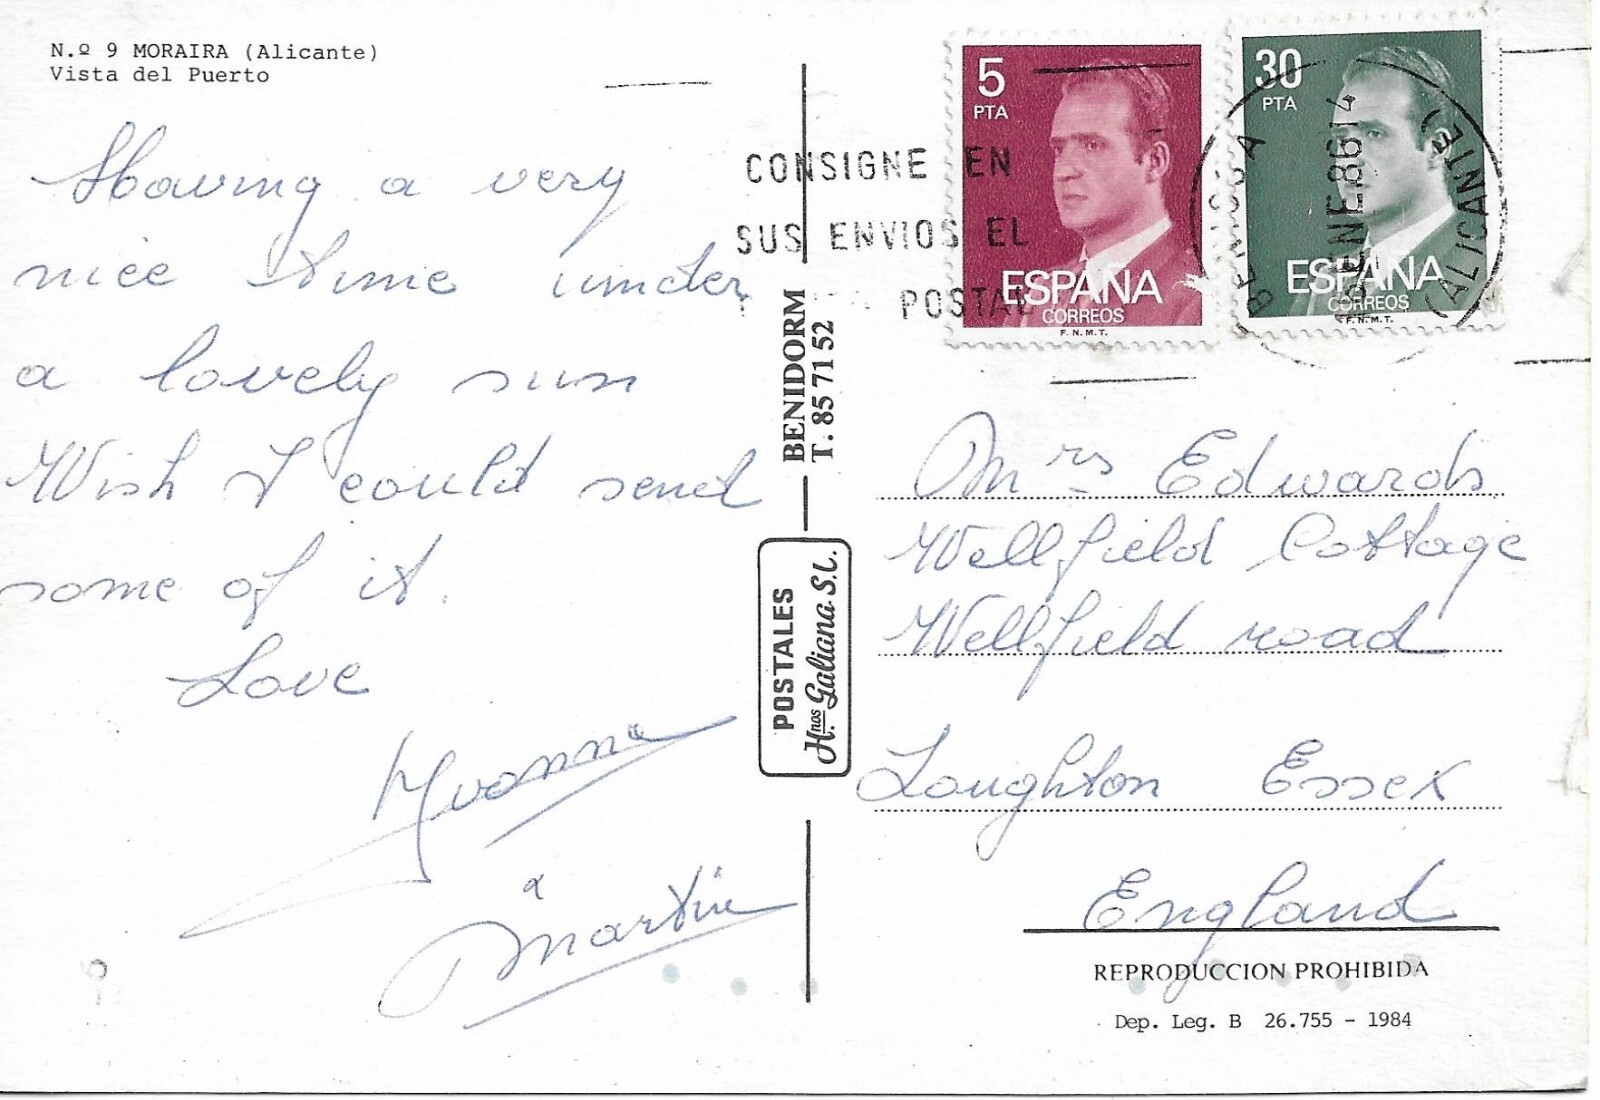 N.º 9 MORAIRA (Alicante)
Vista del Puerto
Having a very
nice time under
a lovely sun
Wish I could send
some of it.
Love
Yvonne
&
Martin
BENIDORM
T. 85 71 52
POSTALES
Hnos Galiana S.L.
CONSIGNE EN
SUS ENVIOS EL
POSTAL
5
PTA
ESPAÑA
CORREOS
F.N.M.T.
30
PTA
ESPAÑA
CORREOS
F.N.M.T.
ENE.86
(ALICANTE)
Mrs Edwards
Wellfield Cottage
Wellfield road
Loughton Essex
England
REPRODUCCION PROHIBIDA
Dep. Leg. B 26.755 - 1984